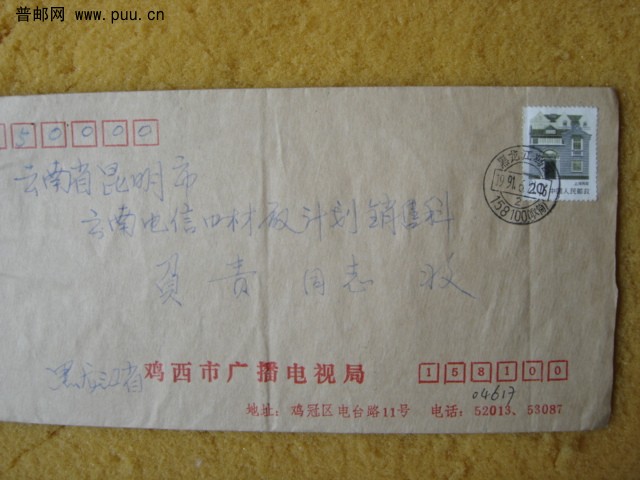 普邮网 www.puu.cn
50000
云南省昆明市
云南电信器材厂计划销售科
贡贵同志收
中国人民邮政
黑龙江
158100
黑龙江省鸡西市广播电视局
158100
04617
地址：鸡冠区电台路11号 电话：52013、53087